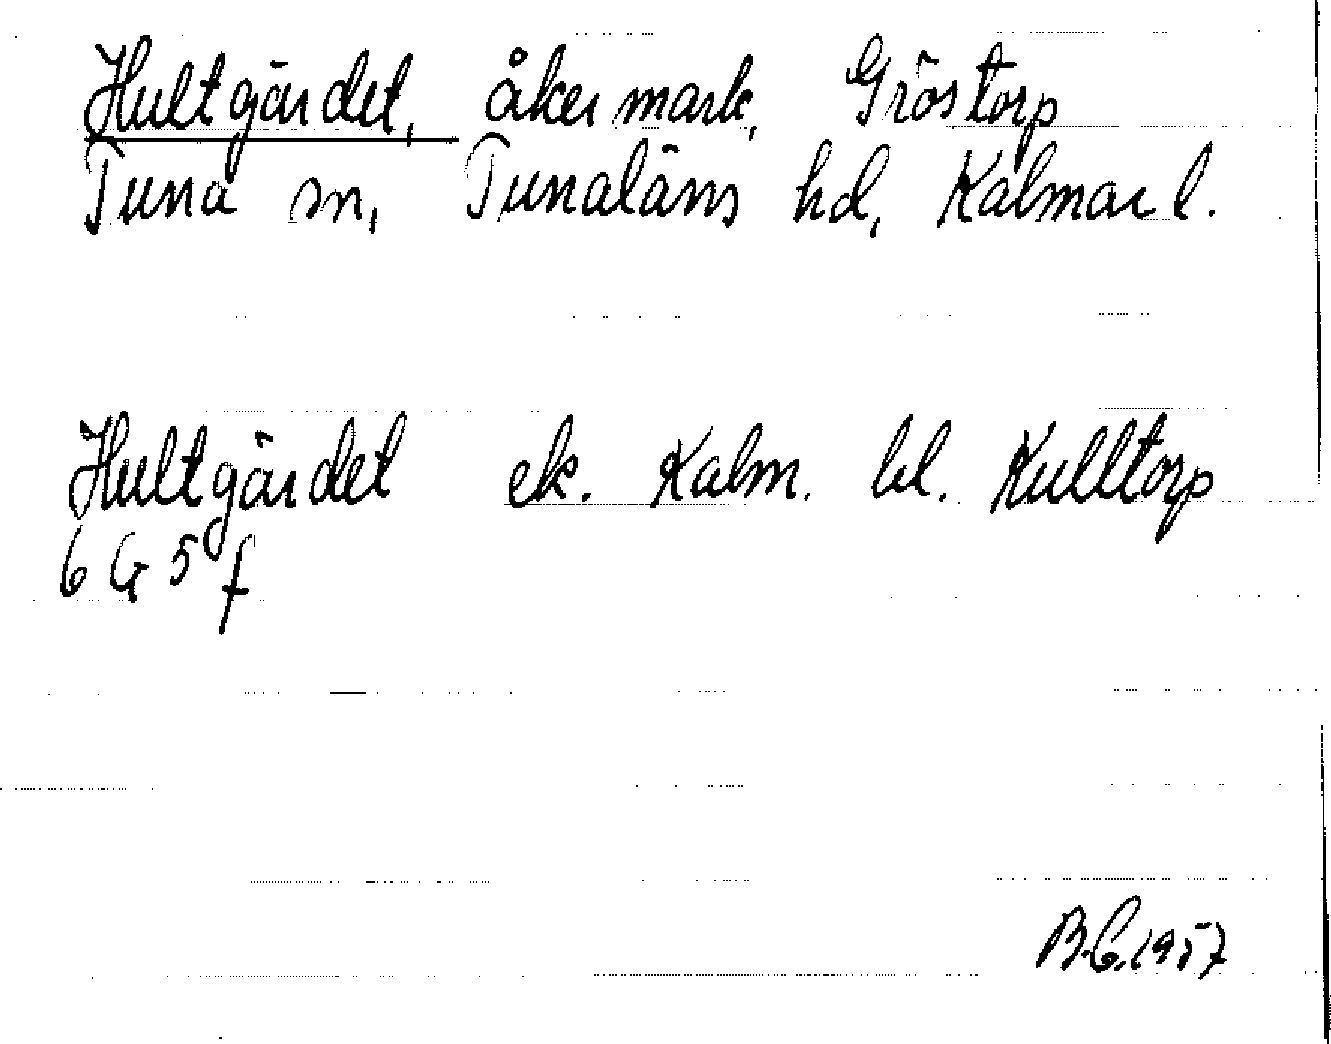 Hultgärdet, åkermark, Gröstorp
Tuna sn, Tunaläns hd, Kalmar l.
Hultgärdet ek. Kalm. bl. Kulltorp
6 G 5 f
B.C. 1957